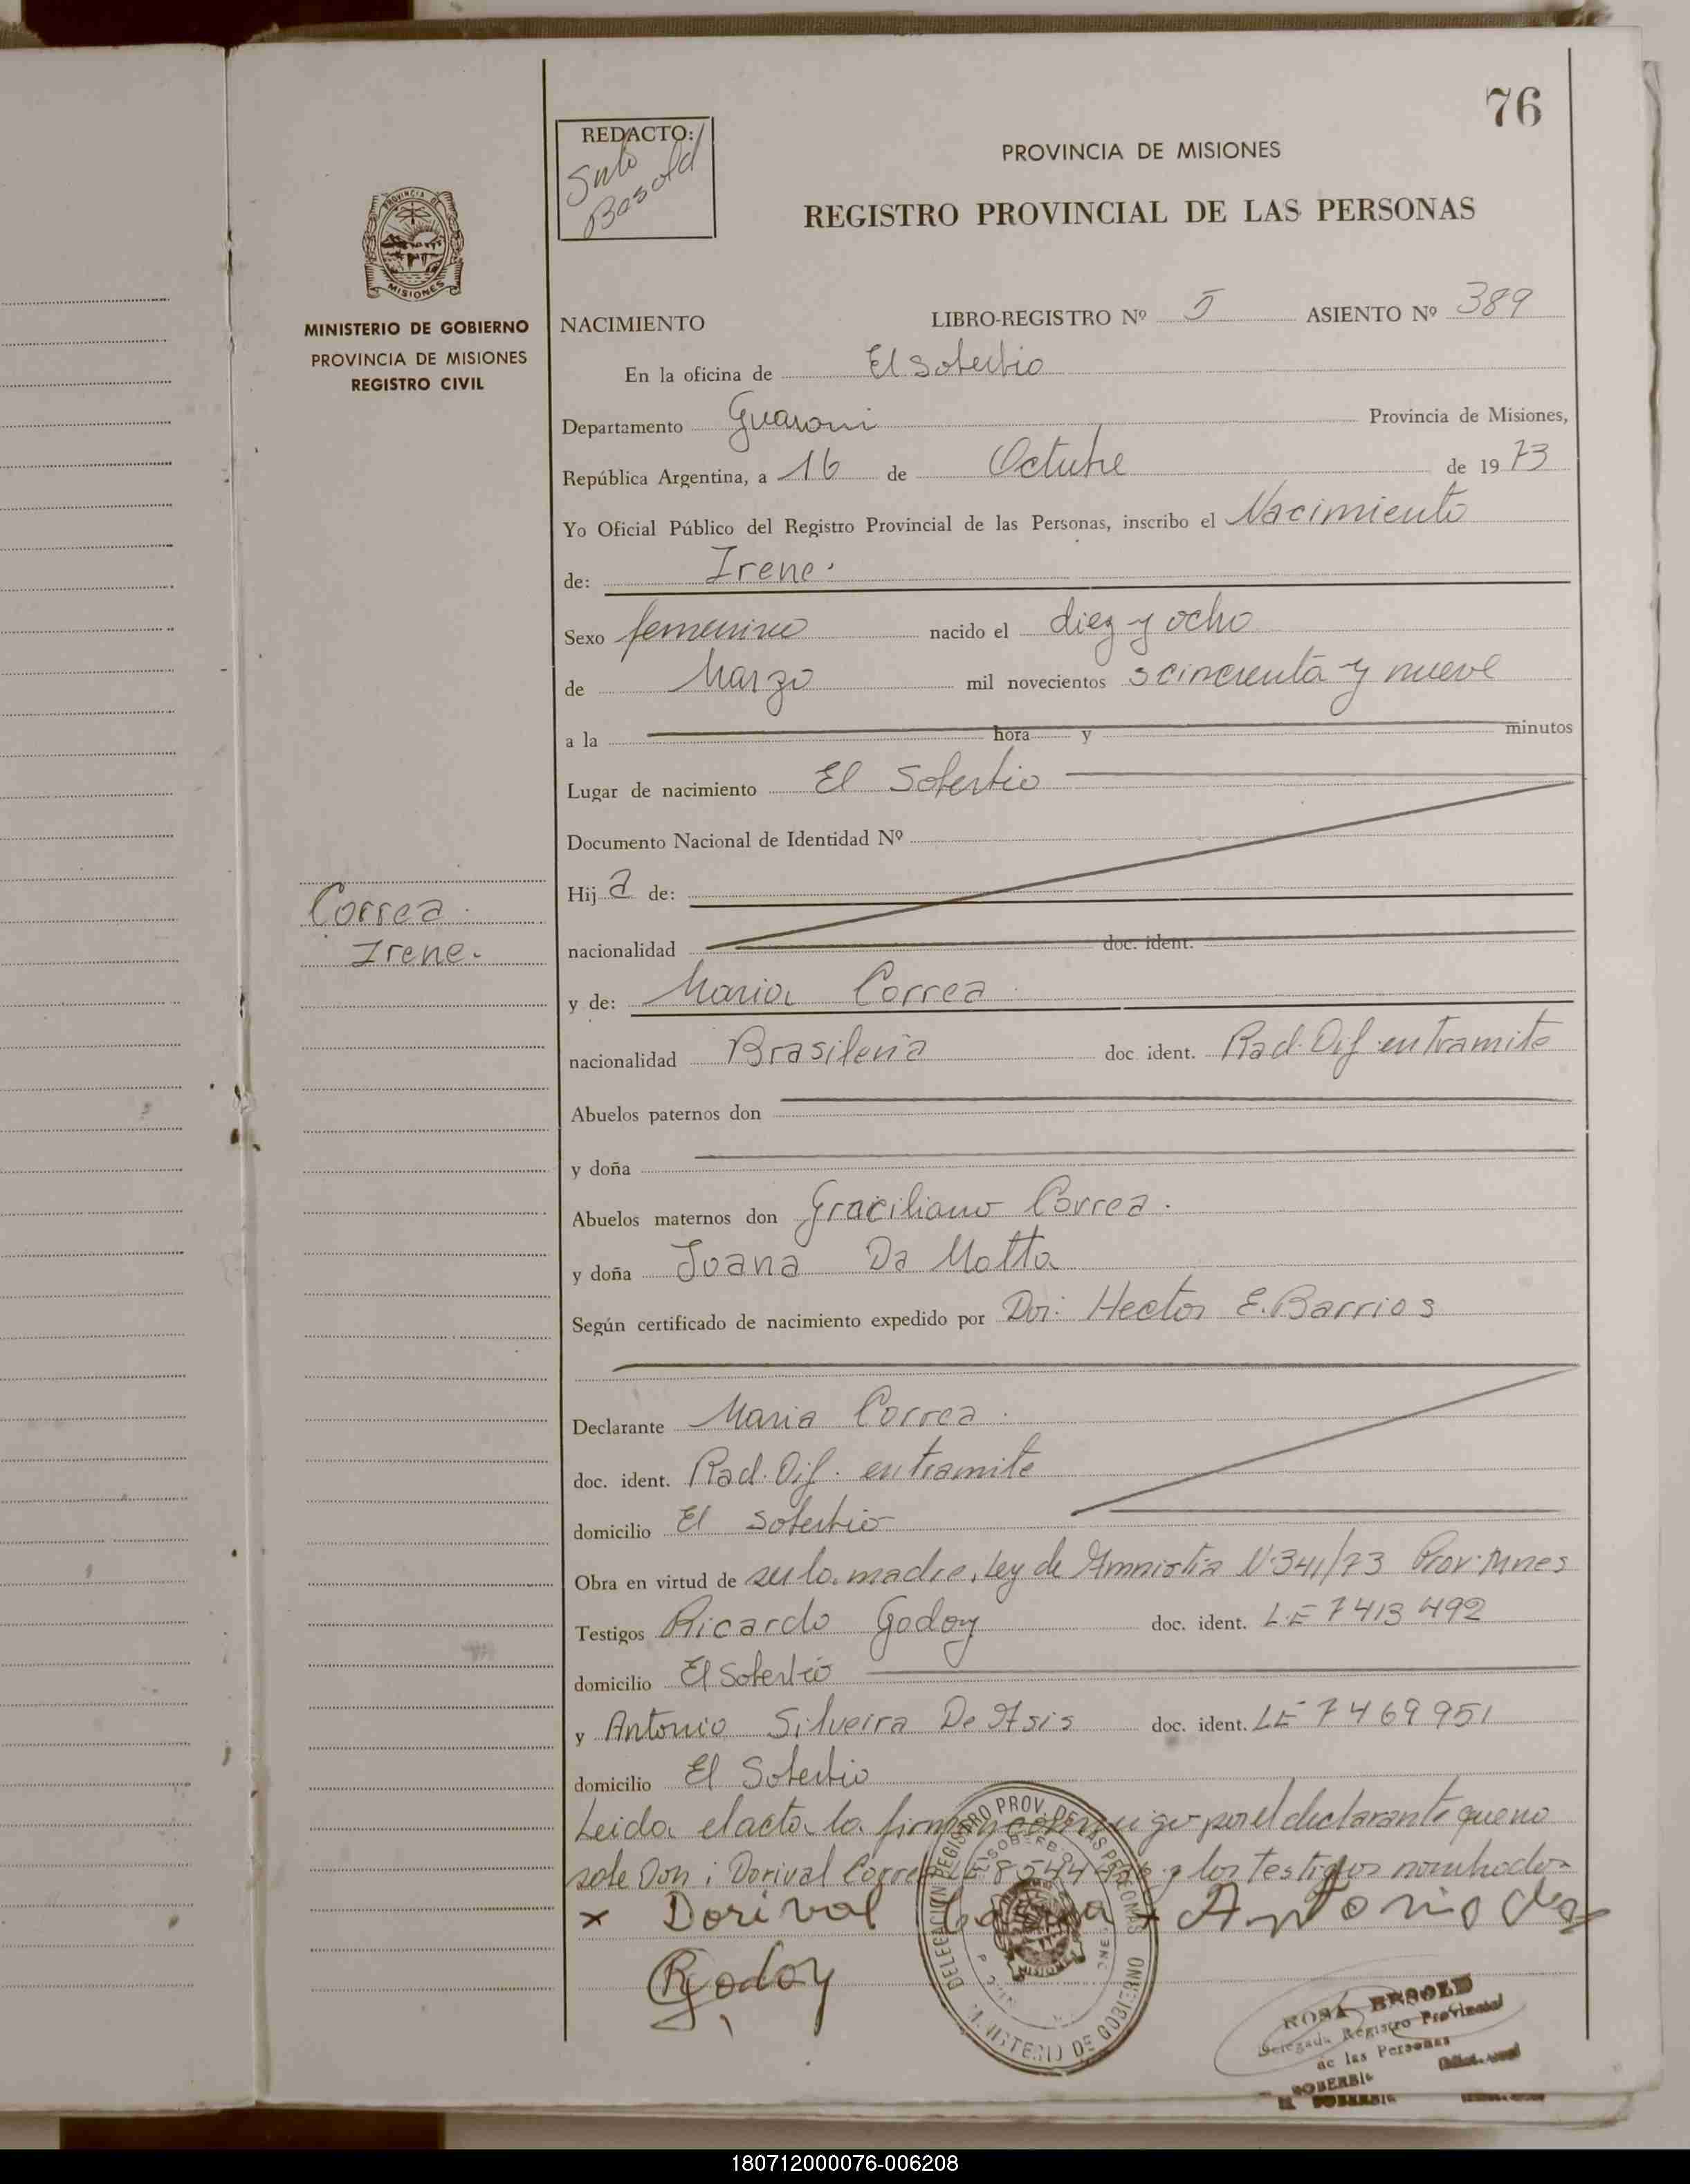 76
REDACTO:
Basold
PROVINCIA DE MISIONES
REGISTRO PROVINCIAL DE LAS PERSONAS
PROVINCIA DE
MISIONES
MINISTERIO DE GOBIERNO
PROVINCIA DE MISIONES
REGISTRO CIVIL
NACIMIENTO LIBRO-REGISTRO Nº 5 ASIENTO Nº 389
En la oficina de El Soberbio
Departamento Guarani Provincia de Misiones,
República Argentina, a 16 de Octubre de 1973
Yo Oficial Público del Registro Provincial de las Personas, inscribo el Nacimiento
de: Irene.
Sexo femenino nacido el diez y ocho
de Marzo mil novecientos scincuenta y nueve
a la hora y minutos
Lugar de nacimiento El Soberbio
Documento Nacional de Identidad Nº
Hija de:
nacionalidad doc. ident.
Correa.
Irene.
y de: Maria Correa
nacionalidad Brasileña doc. ident. Rad. Dif. en tramite
Abuelos paternos don
y doña
Abuelos maternos don Graciliano Correa.
y doña Joana Da Motta
Según certificado de nacimiento expedido por Dor: Hector E. Barrios
Declarante Maria Correa.
doc. ident. Rad. Dif. en tramite
domicilio El Soberbio
Obra en virtud de ser la madre, Ley de Amnistia N 341/73 Prov. Mnes
Testigos Ricardo Godoy doc. ident. L.E 7413492
domicilio El Soberbio
y Antonio Silveira De Asis doc. ident. LE 7469951
domicilio El Soberbio
Leida el acta la firman conmigo por el declarante que no
sabe Don: Dorival Correa y los testigos nombrados
x Dorival Antonio
RGodoy
DELEGACION REGISTRO PROV. DE LAS PERSONAS
MINISTERIO DE GOBIERNO
MISIONES
ROSA BASOLD
Delegada Registro Provincial
de las Personas
SOBERBIO
180712000076-006208